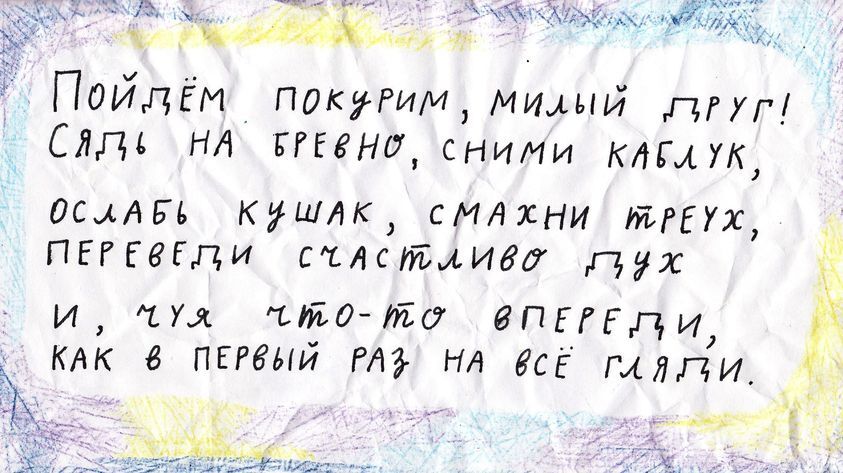 Пойдём покурим, милый друг!
Сядь на бревно, сними каблук,
ослабь кушак, смахни треух,
переведи счастливо дух
и, чуя что-то впереди,
как в первый раз на всё гляди.